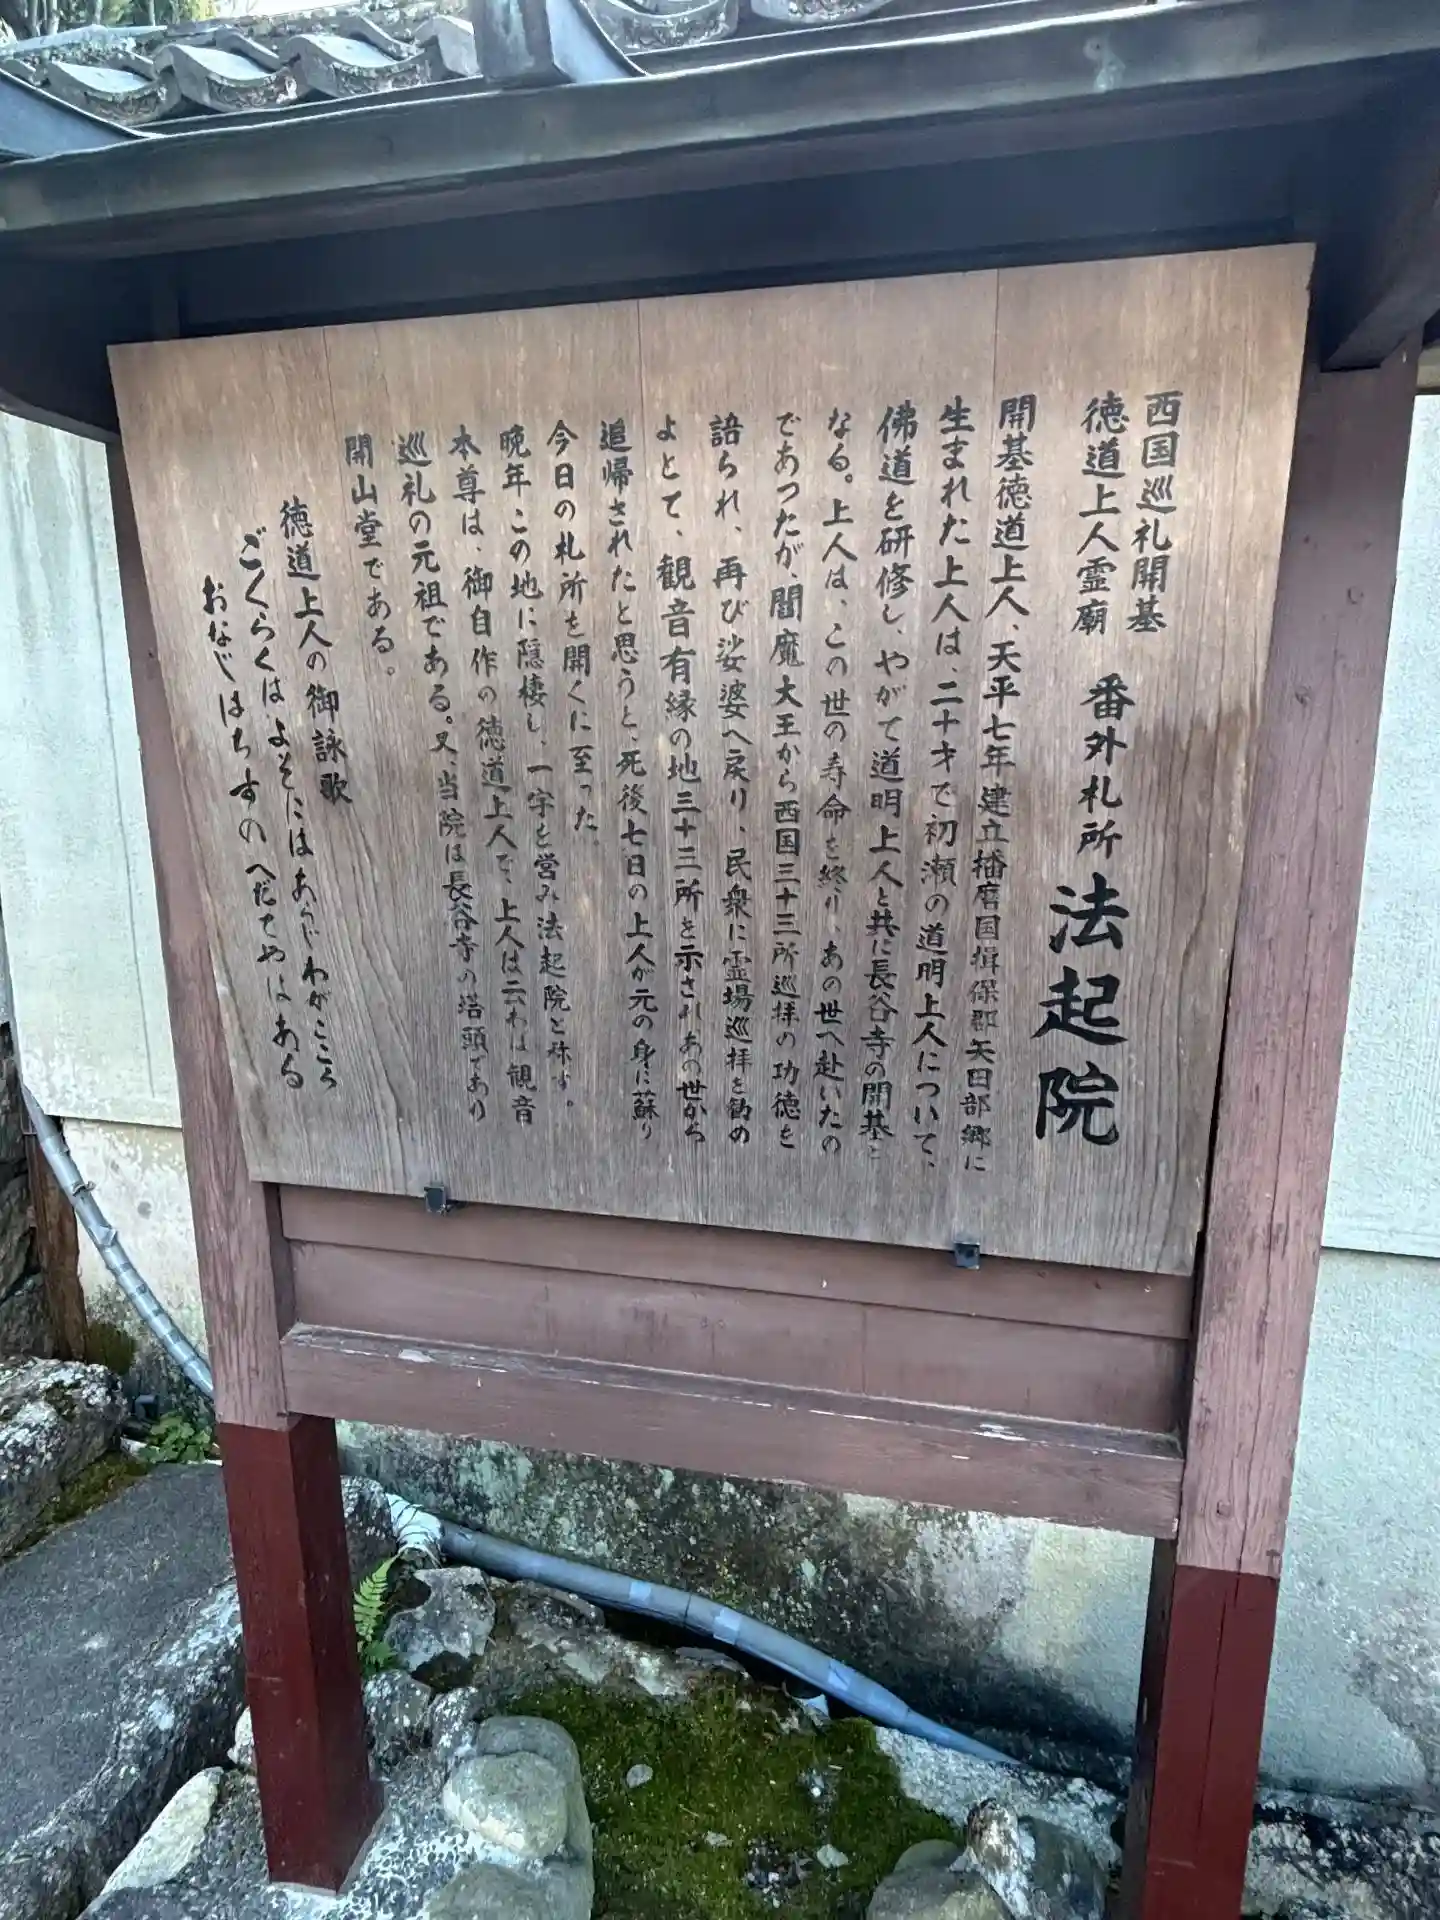 西国巡礼開基
徳道上人霊廟
番外札所 法起院
開基徳道上人、天平七年建立播磨国揖保郡矢田部郷に
生まれた上人は、二十才で初瀬の道明上人について、
佛道を研修し、やがて道明上人と共に長谷寺の開基と
なる。上人は、この世の寿命を終り、あの世へ赴いたの
であつたが、閻魔大王から西国三十三所巡拝の功徳を
語られ、再び娑婆へ戻り、民衆に霊場巡拝を勧め
よとて、観音有縁の地三十三所を示されあの世から
追帰されたと思うと、死後七日の上人が元の身に蘇り
今日の札所を開くに至った。
晩年この地に隠棲し、一宇を営み法起院と称す。
本尊は、御自作の徳道上人で、上人は云わば観音
巡礼の元祖である。又、当院は長谷寺の塔頭であり
開山堂である。
徳道上人の御詠歌
ごくらくは、よそにはあらじわがこころ
おなじはちすの へだてやはある